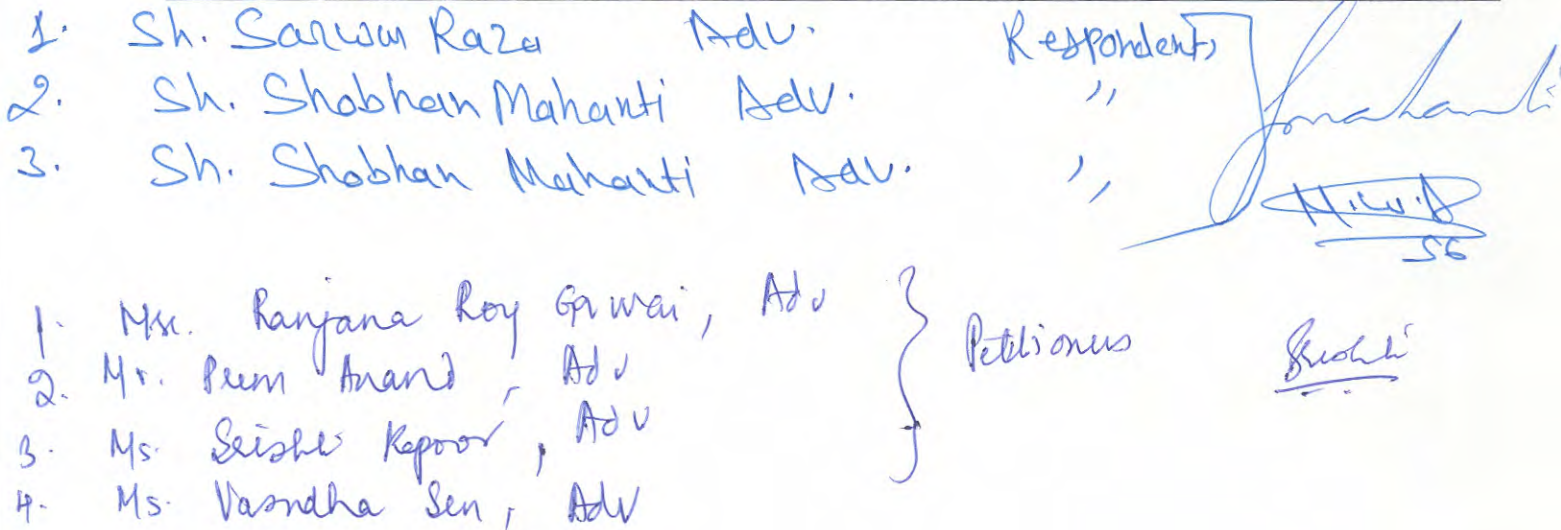 1. Sh. Sarwar Raza Adv. Respondents
2. Sh. Shobhan Mahanti Adv. "
3. Sh. Shobhan Mahanti Adv. "
56
1. Ranjana Roy Gawai, Adv
2. Mr. Prem Anand, Adv
3. Ms. Srishti Kapoor, Adv
4. Ms. Vasudha Sen, Adv
Petitioners
Srishti